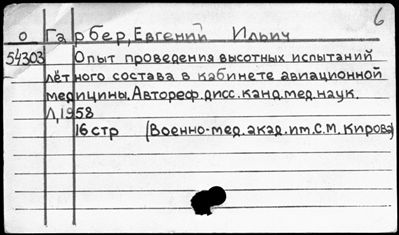 6
О Гарбер, Евгений Ильич
54303 Опыт проведения высотных испытаний
лётного состава в кабинете авиационной
медицины. Автореф. дисс. канд. мед. наук.
Л, 1958
16 стр (Военно-мед. акад. им. С.М. Кирова)